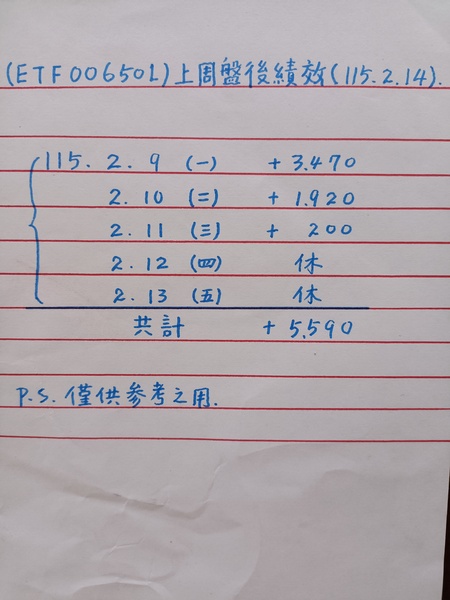 (ETF00650L)上周盤後績效(115.2.14).
115. 2. 9 (一) + 3.470
2. 10 (二) + 1.920
2. 11 (三) + 200
2. 12 (四) 休
2. 13 (五) 休
共計 + 5.590
P.S. 僅供参考之用.